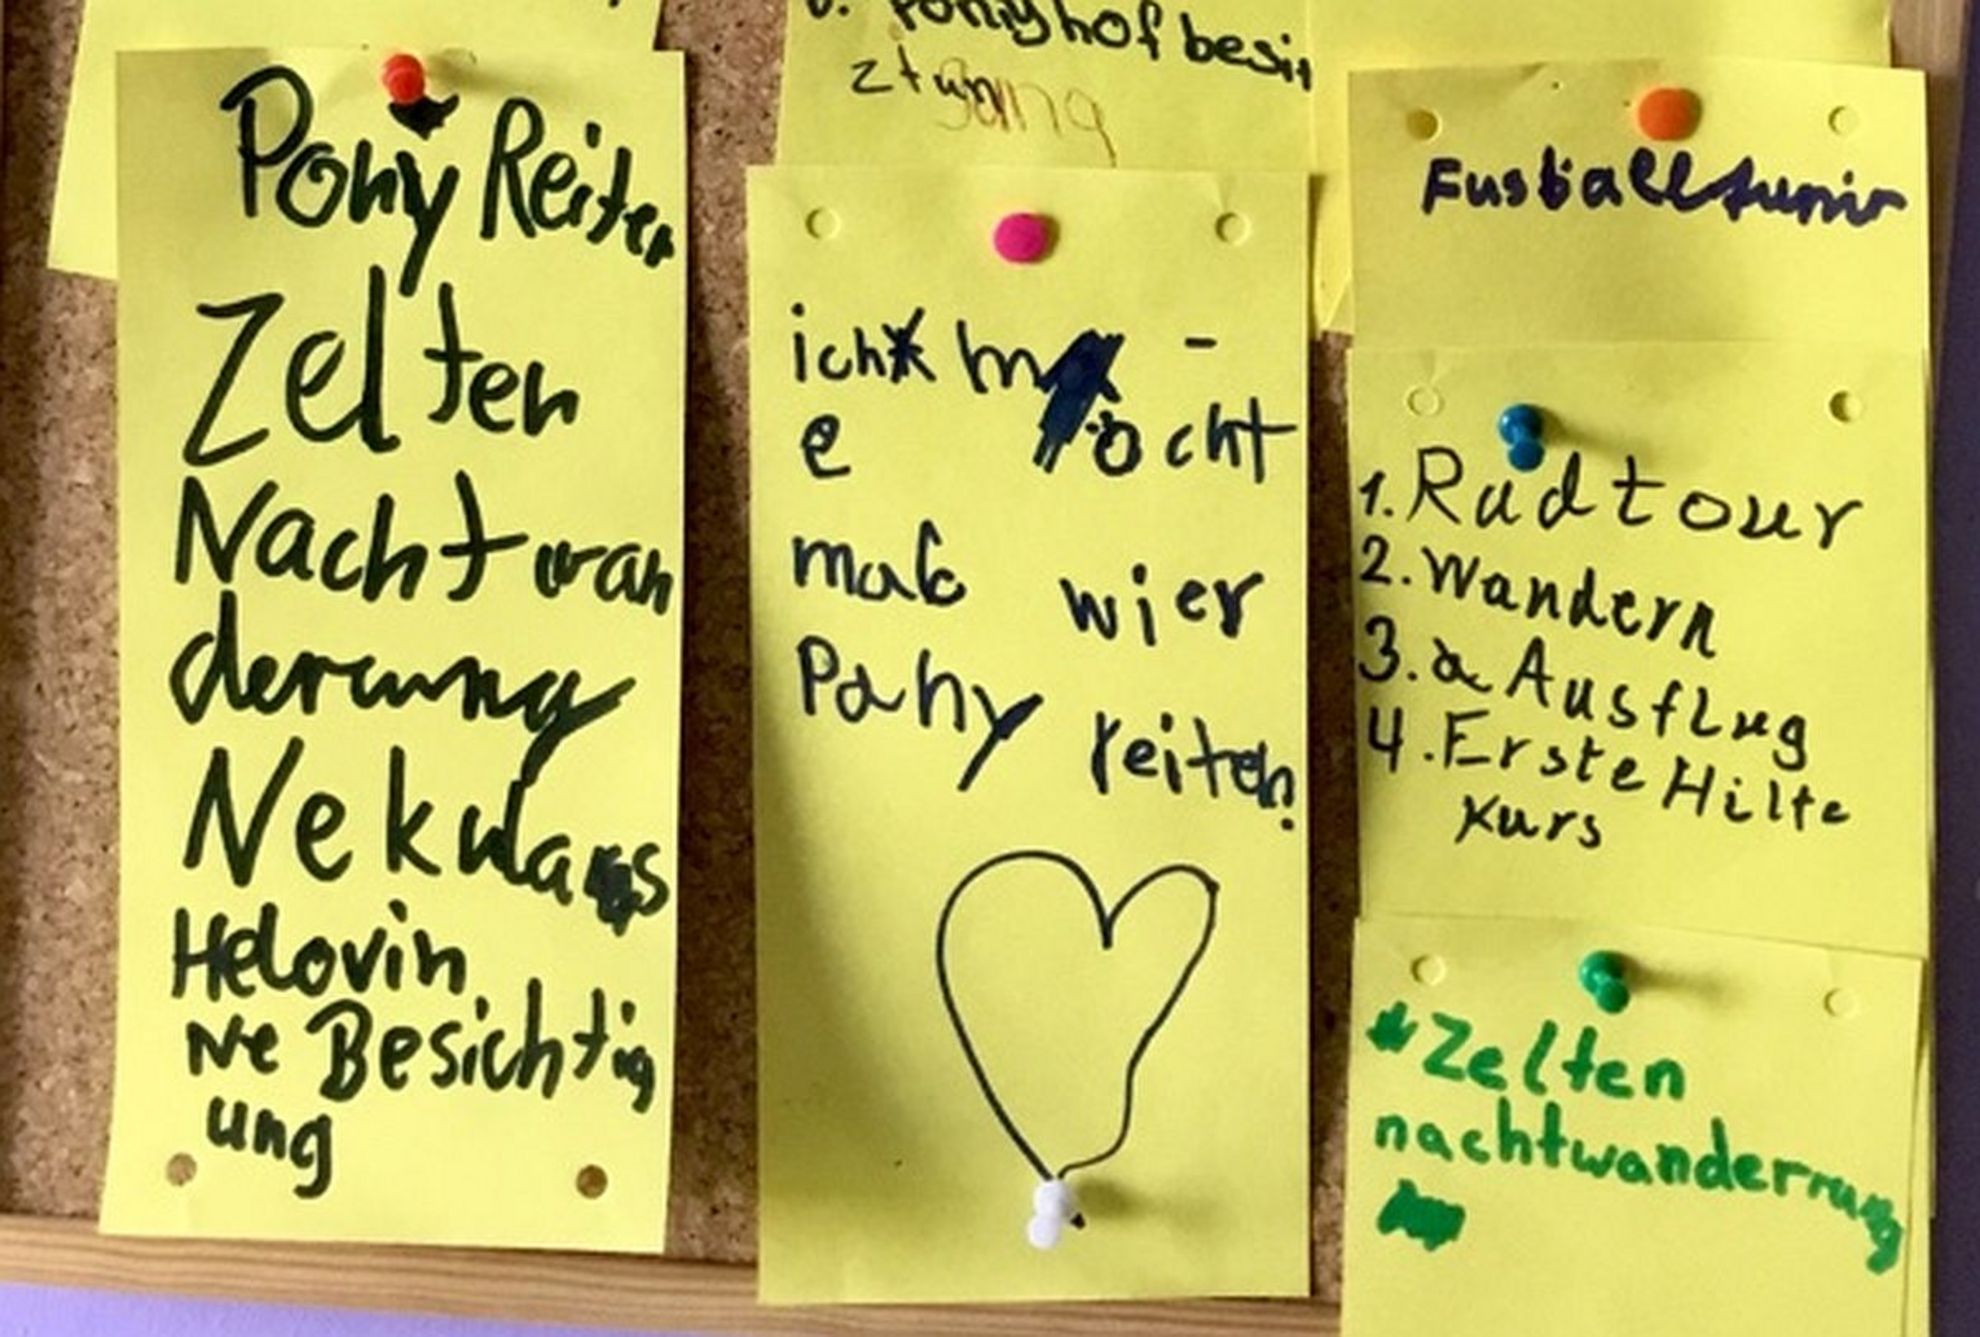 Pony Reiten
Zelten
Nachtwan
derung
Nekulaus
Helovin
Ne Besichtig
ung
6. Ponyhof besit
ztgung
ich m -
e öcht
mal wier
Pony reiten.
Fusballturnir
1. Radtour
2. Wandern
3. Ausflug
4. Erste Hilfe
Kurs
Zelten
nachtwanderrung